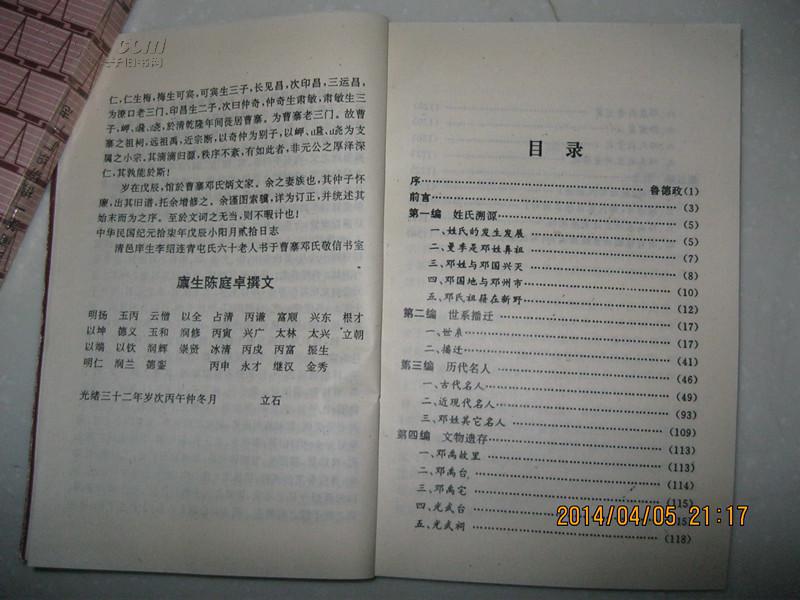 仁,仁生梅,梅生可宾,可宾生三子,长见昌,次印昌,三运昌,
为潦口老三门,印昌生二子,次曰仲奇,仲奇生肃敏,肃敏生三
子,岬、巃、峣,於清乾隆年间徙居曹寨。为曹寨老三门。故曹
寨之祖树,远祖禹,近宗断,以奇仲为别子,以岬、巃、峣为支
属之小宗,其滴滴归源,秩序不紊,有如此者,非元公之厚泽深
仁,其孰能於斯!
岁在戊辰,馆於曹寨邓氏炳文家。余之妻族也,其仲子怀
廉,出其旧谱,托余增修之。余谨图索骥,详为订正,并统述其
始末而为之序。至於文词之无当,则不暇计也!
中华民国纪元拾柒年戊辰小阳月贰拾日志
清邑庠生李绍连青屯氏六十老人书于曹寨邓氏敬信书室
廪生陈庭卓撰文
明扬 玉丙 云僧 以全 占清 丙谦 富顺 兴东 根才
以坤 德义 玉和 润修 丙寅 兴广 太林 太兴 立朝
以端 以钦 润辉 崇贤 冰清 丙戌 丙富 振生
明仁 润兰 德銮 丙申 永才 继汉 金秀
光绪三十二年岁次丙午仲冬月 立石
目录
序 鲁德政(1)
前言 (3)
第一编 姓氏溯源 (5)
一、姓氏的发生发展 (5)
二、曼季是邓姓鼻祖 (7)
三、邓姓与邓国兴灭 (8)
四、邓国地与邓州市 (10)
五、邓氏祖籍在新野 (12)
第二编 世系播迁 (17)
一、世系 (17)
二、播迁 (41)
第三编 历代名人 (46)
一、古代名人 (49)
二、近现代名人 (93)
三、邓姓其它名人 (109)
第四编 文物遗存 (113)
一、邓禹故里 (113)
二、邓禹台 (114)
三、邓禹宅 (115)
四、光武台
五、光武祠 (118)
2014/04/05 21:17